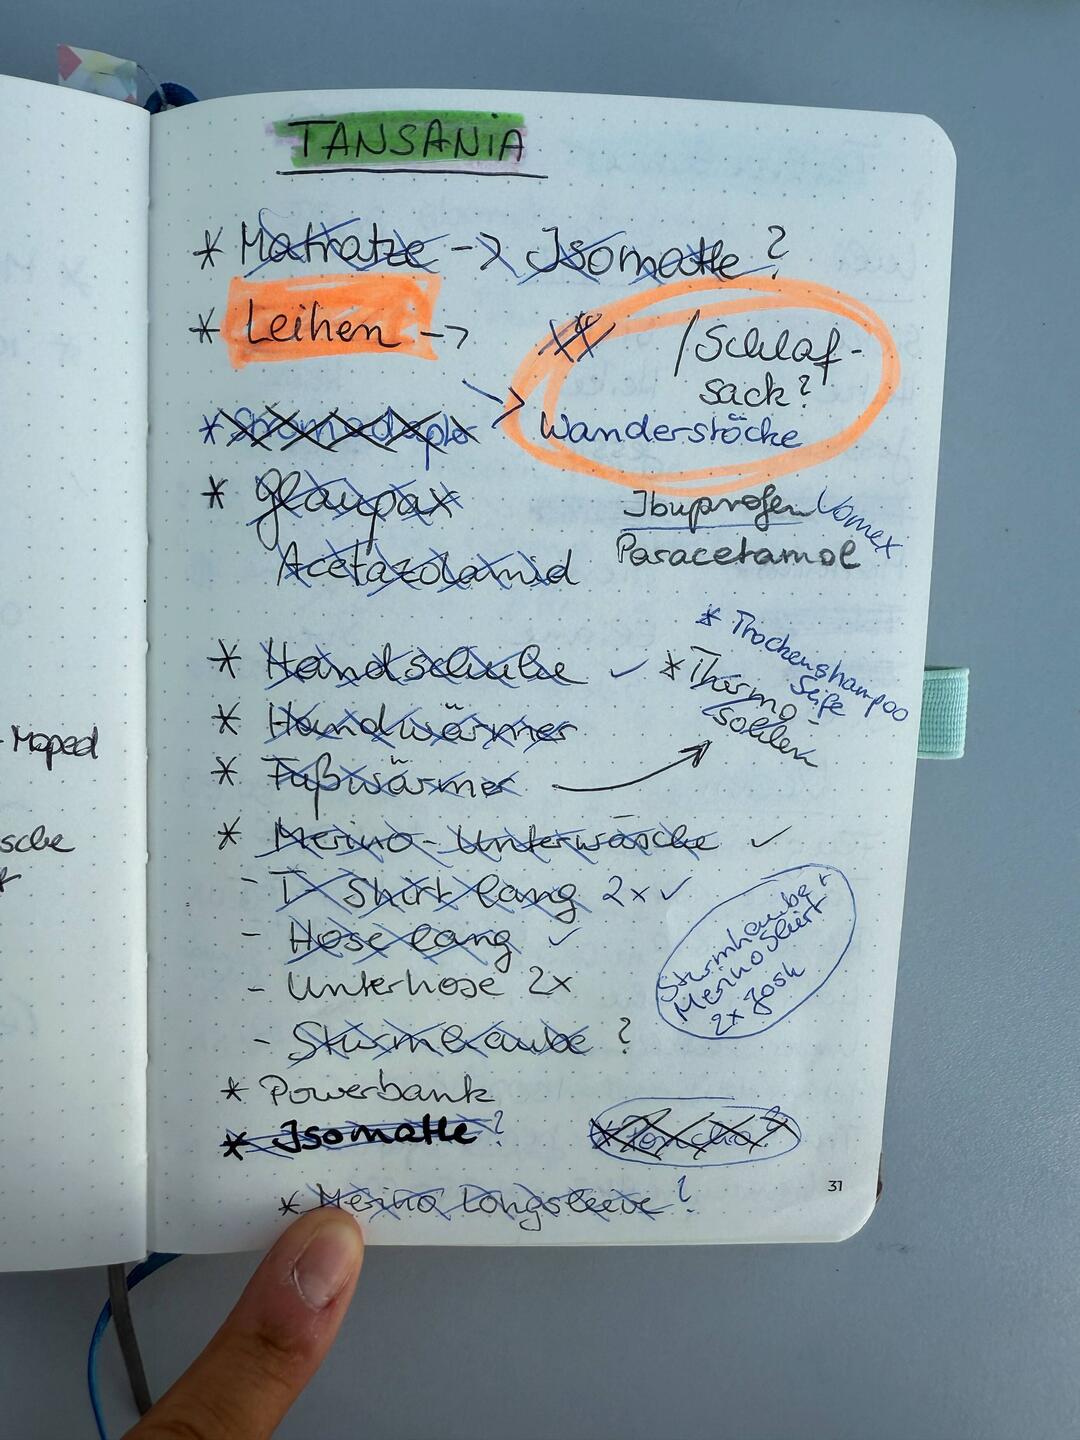 TANSANIA
* Matratze -> Isomatte ?
* Leihen ->
/ Schlaf-
sack?
Wanderstöcke
* Glaupax
Acetazolamid
Ibuprofen Vomex
Paracetamol
* Trockenshampoo
Seife
* Handschuhe ✓
* Thermo-
sohlen
* Handwärmer
* Fußwärmer
* Merino-Unterwäsche ✓
- T-Shirt lang 2x ✓
- Hose lang ✓
- Unterhose 2x
- Sturmhaube ?
Sturmhaube +
Merinoshirt
2x Josh
* Powerbank
* Isomatte ?
* Poncho?
* Merino Longsleeve ?
31
- Moped
sche